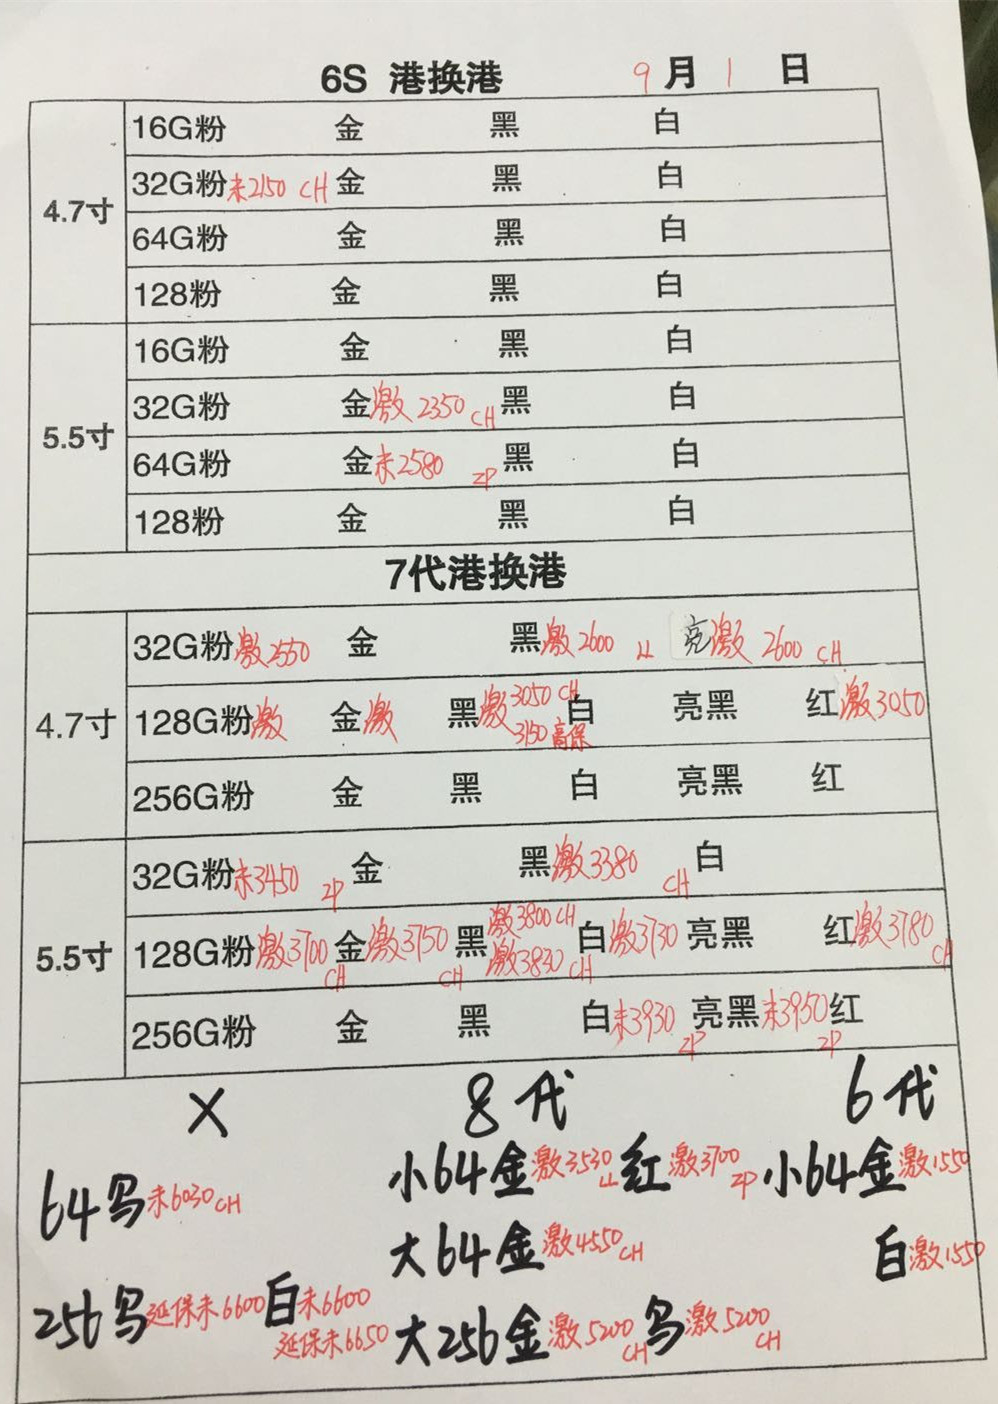 6S 港换港 9月1日
4.7寸
16G粉 金 黑 白
32G粉未2150 CH 金 黑 白
64G粉 金 黑 白
128粉 金 黑 白
5.5寸
16G粉 金 黑 白
32G粉 金激2350 CH 黑 白
64G粉 金未2580 ZP 黑 白
128粉 金 黑 白
7代港换港
4.7寸
32G粉激2550 金 黑激2600 LL 亮激2600 CH
128G粉激 金激 黑激3050 CH 3150高保 白 亮黑 红激3050
256G粉 金 黑 白 亮黑 红
5.5寸
32G粉未3450 ZP 金 黑激3380 CH 白
128G粉激3700 CH 金激3750 CH 黑激3800 CH 激3830 CH 白激3730 亮黑 红激3780 CH
256G粉 金 黑 白未3930 ZP 亮黑未3950 ZP 红
X 8代 6代
64乌未6030 CH 小64金激3530 LL 红激3700 ZP 小64金激1550
大64金激4550 CH 白激1550
256乌延保未6600 白未6600 延保未6650 大256金激5200 CH 乌激5200 CH